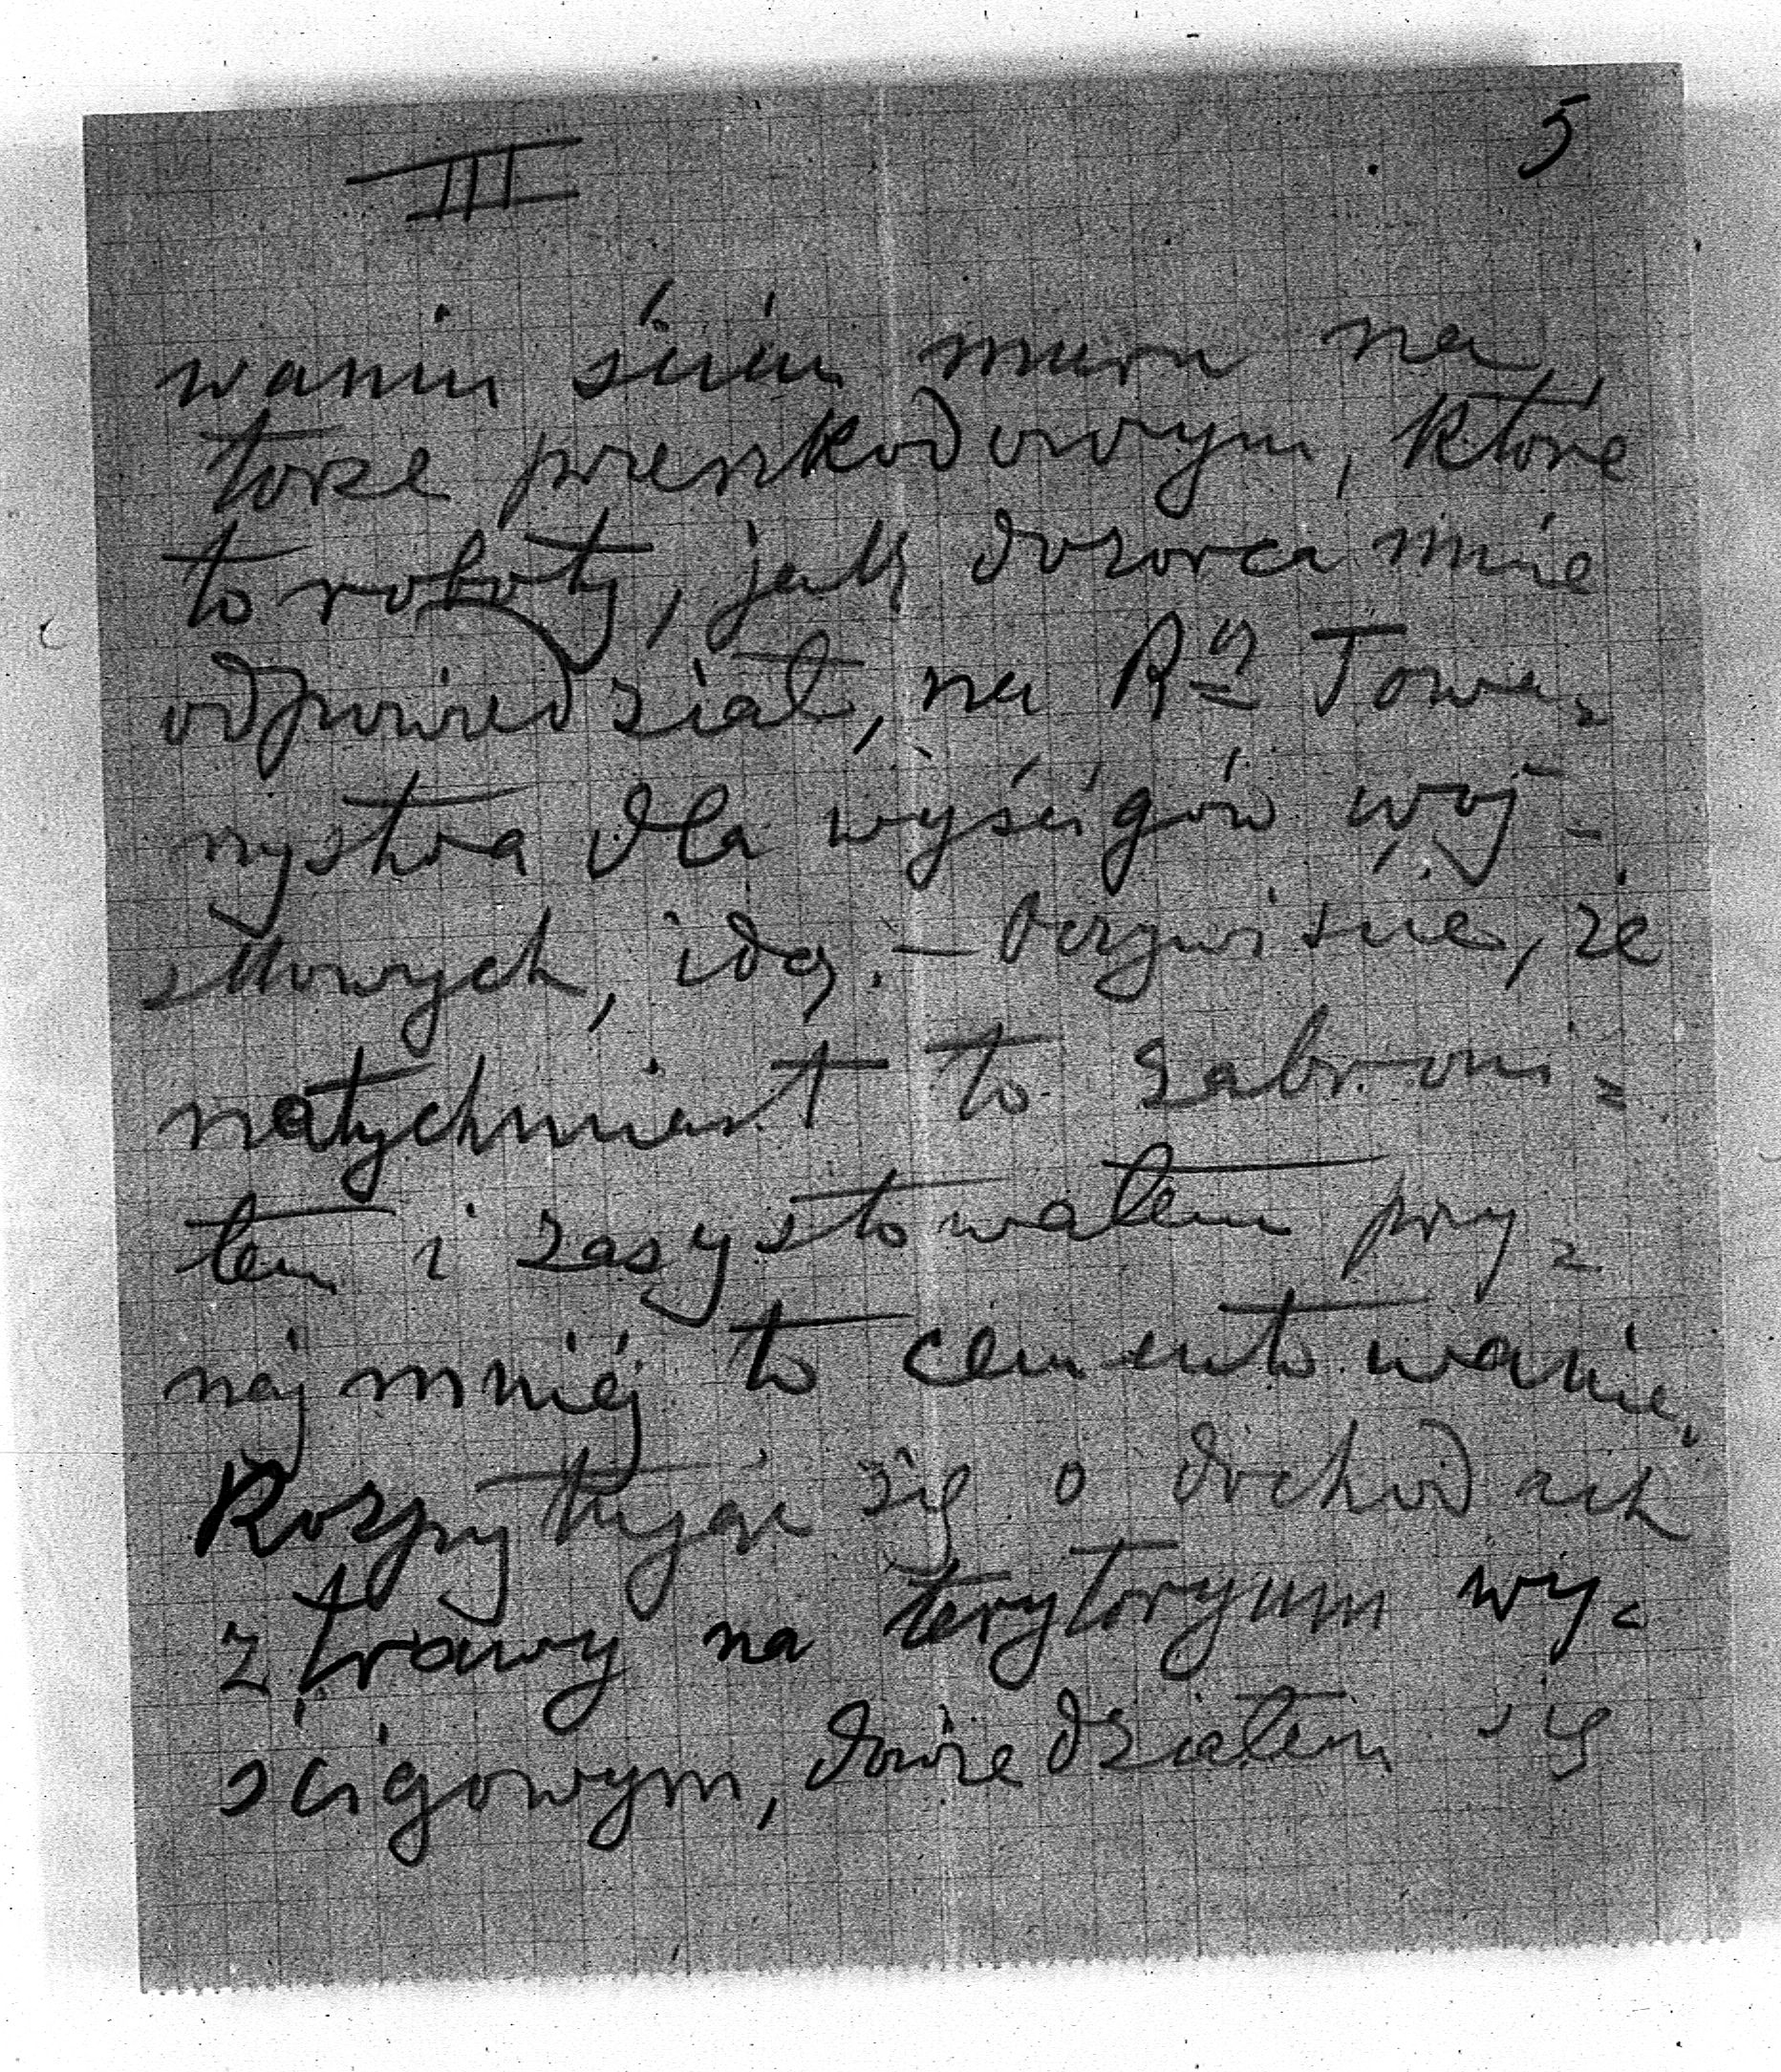 III 5
waniu ścian muru na
torze przeszkodowym, które
to roboty, jak dozorca mnie
odpowiedział, na R-ą Towa-
rzystwa dla wyścigów woj-
skowych, idą. – Oczywiście, że
natychmiast to zabroni-
łem i zasystowałem przy-
najmniéj to cementowanie.
Rozpytując się o dochodach
z trawy na terytoryum wy-
ścigowym, dowiedziałem się